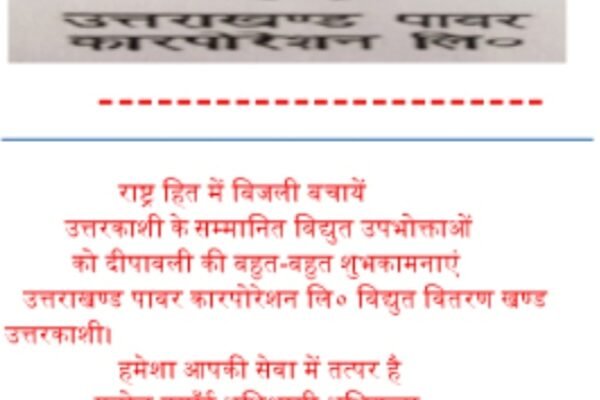 उत्तराखण्ड पावर
कारपोरेशन लि०
राष्ट्र हित में बिजली बचायें
उत्तरकाशी के सम्मानित विद्युत उपभोक्ताओं
को दीपावली की बहुत-बहुत शुभकामनाएं
उत्तराखण्ड पावर कारपोरेशन लि० विद्युत वितरण खण्ड
उत्तरकाशी।
हमेशा आपकी सेवा में तत्पर है